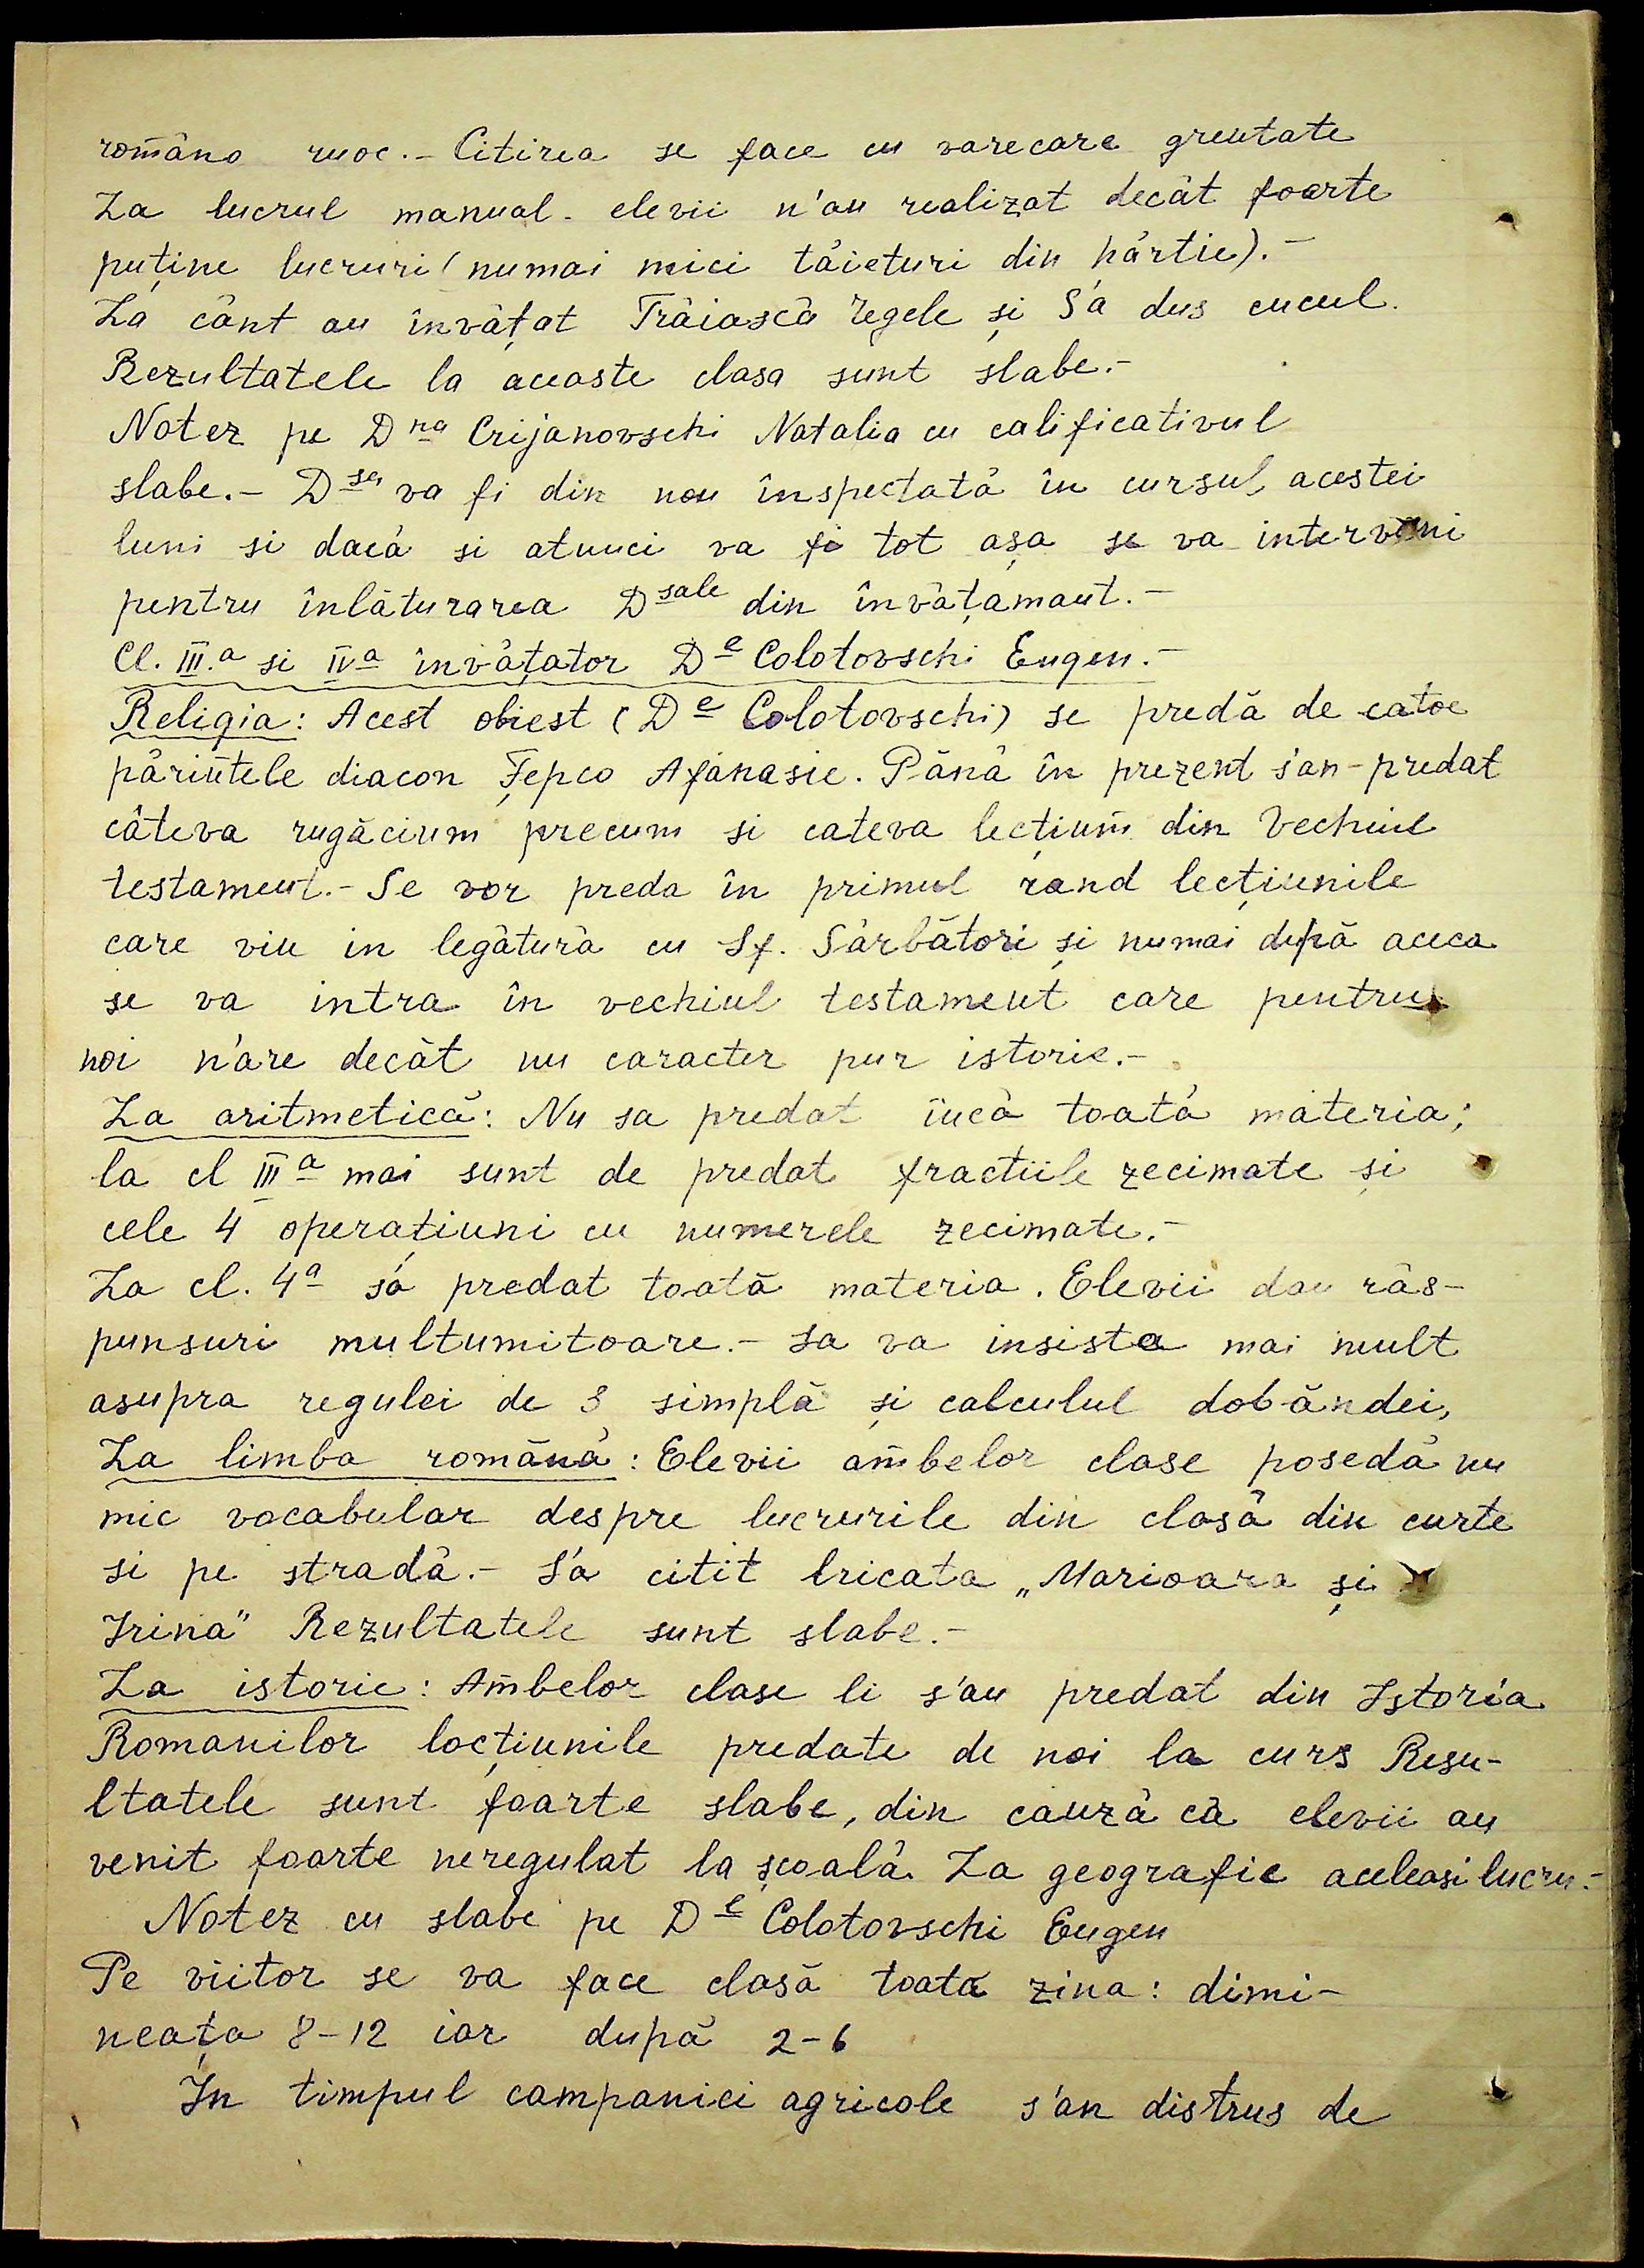 româno rusc.- Citirea se face cu oarecare greutate
La lucrul manual- elevii n'au realizat decât foarte
puține lucruri (numai mici tăieturi din hârtie).-
La cânt au învățat Trăiască regele și S'a dus cucul.
Rezultatele la aceaste clasa sunt slabe.-
Notez pe Dna Crijanovschi Natalia cu calificativul
slabe.- Dsa va fi din nou inspectată în cursul acestei
luni si dacă si atunci va fi tot așa se va interveni
pentru înlăturarea Dsale din învățamant.-
Cl. III.a si IVa învățator De Colotovschi Eugen.-
Religia: Acest obiest (De Colotovschi) se predă de catoe
părintele diacon Țepco Afanasie. Până în prezent s'an-predat
câteva rugăcium precum si cateva lecțium din Vechiul
testament.- Se vor preda în primul rand lecțiunile
care vin in legătură cu Sf. Sărbători și numai după aceea
se va intra în vechiul testament care pentru
noi n'are decât nu caracter pur istorie.-
La aritmetică: Nu sa predat încă toată materia;
la cl IIIa mai sunt de predat fractiile zecimate și
cele 4 operațiuni cu numerele zecimate.-
La cl. 4a s'a predat toată materia. Elevii dau răs-
punsuri multumitoare.- sa va insista mai mult
asupra regulei de 3 simplă și calculul dobăndei,
La limba română: Elevii ambelor clase posedă nu
mic vocabular despre lucrurile din clasă din curte
si pe stradă.- S'a citit bricata „Marioara și
Irina" Rezultatele sunt slabe.-
La istorie: Ambelor clase li s'au predat din Istoria
Romanilor locțiunile predate de noi la curs Resu-
ltatele sunt foarte slabe, din cauză că elevii au
venit foarte neregulat la școală. La geografie aceleasi lucru.-
Notez cu slabe pe De Colotovschi Eugen
Pe viitor se va face clasă toata zina: dimi-
neața 8-12 iar după 2-6
In timpul campaniei agricole s'an distrus de